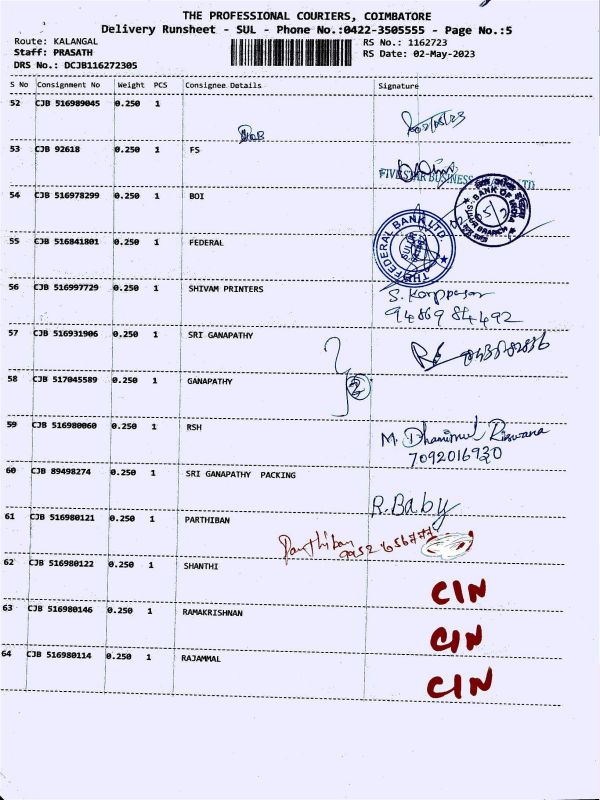 THE PROFESSIONAL COURIERS, COIMBATORE
Delivery Runsheet - SUL - Phone No.:0422-3505555 - Page No.:5
Route: KALANGAL
Staff: PRASATH
DRS No.: DCJB116272305
RS No.: 1162723
RS Date: 02-May-2023
S No Consignment No Weight PCS Consignee Details Signature
52 CJB 516989045 0.250 1
53 CJB 92618 0.250 1 FS
FIVE STAR BUSINESS LTD
54 CJB 516978299 0.250 1 BOI
BANK OF INDIA
55 CJB 516841801 0.250 1 FEDERAL
THE FEDERAL BANK LTD.
56 CJB 516997729 0.250 1 SHIVAM PRINTERS
94869 84492
57 CJB 516931906 0.250 1 SRI GANAPATHY
58 CJB 517045589 0.250 1 GANAPATHY
2
59 CJB 516980060 0.250 1 RSH
M. Dhanimul Rizwana
7092016930
60 CJB 89498274 0.250 1 SRI GANAPATHY PACKING
R. Baby
61 CJB 516980121 0.250 1 PARTHIBAN
Parthiban
9952656777
62 CJB 516980122 0.250 1 SHANTHI
CIN
63 CJB 516980146 0.250 1 RAMAKRISHNAN
CIN
64 CJB 516980114 0.250 1 RAJAMMAL
CIN